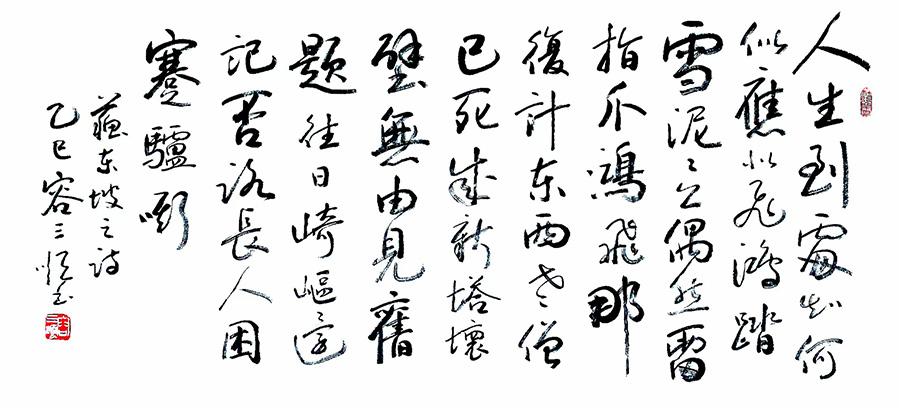 人生到處知何
似應似飛鴻踏
雪泥〻上偶然留
指爪鴻飛那
復計东西老僧
已死成新塔壞
壁無由見舊
题往日崎嶇還
記否路長人困
蹇驢嘶
蘇东坡之诗
乙巳容三